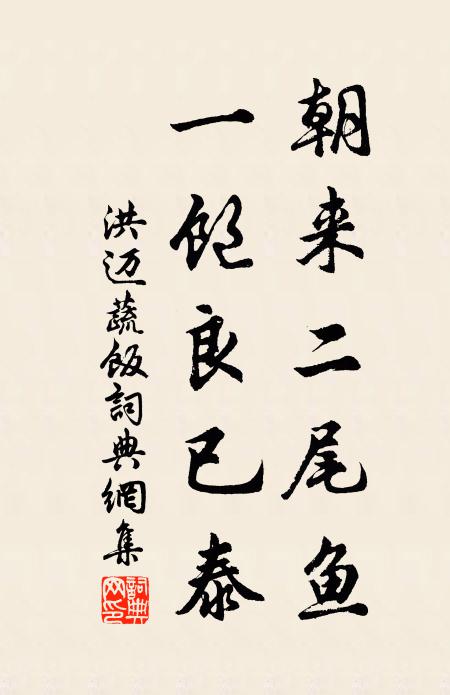 朝来二尾鱼
一饱良已泰
洪迈蔬饭詞典網集
詞典网印